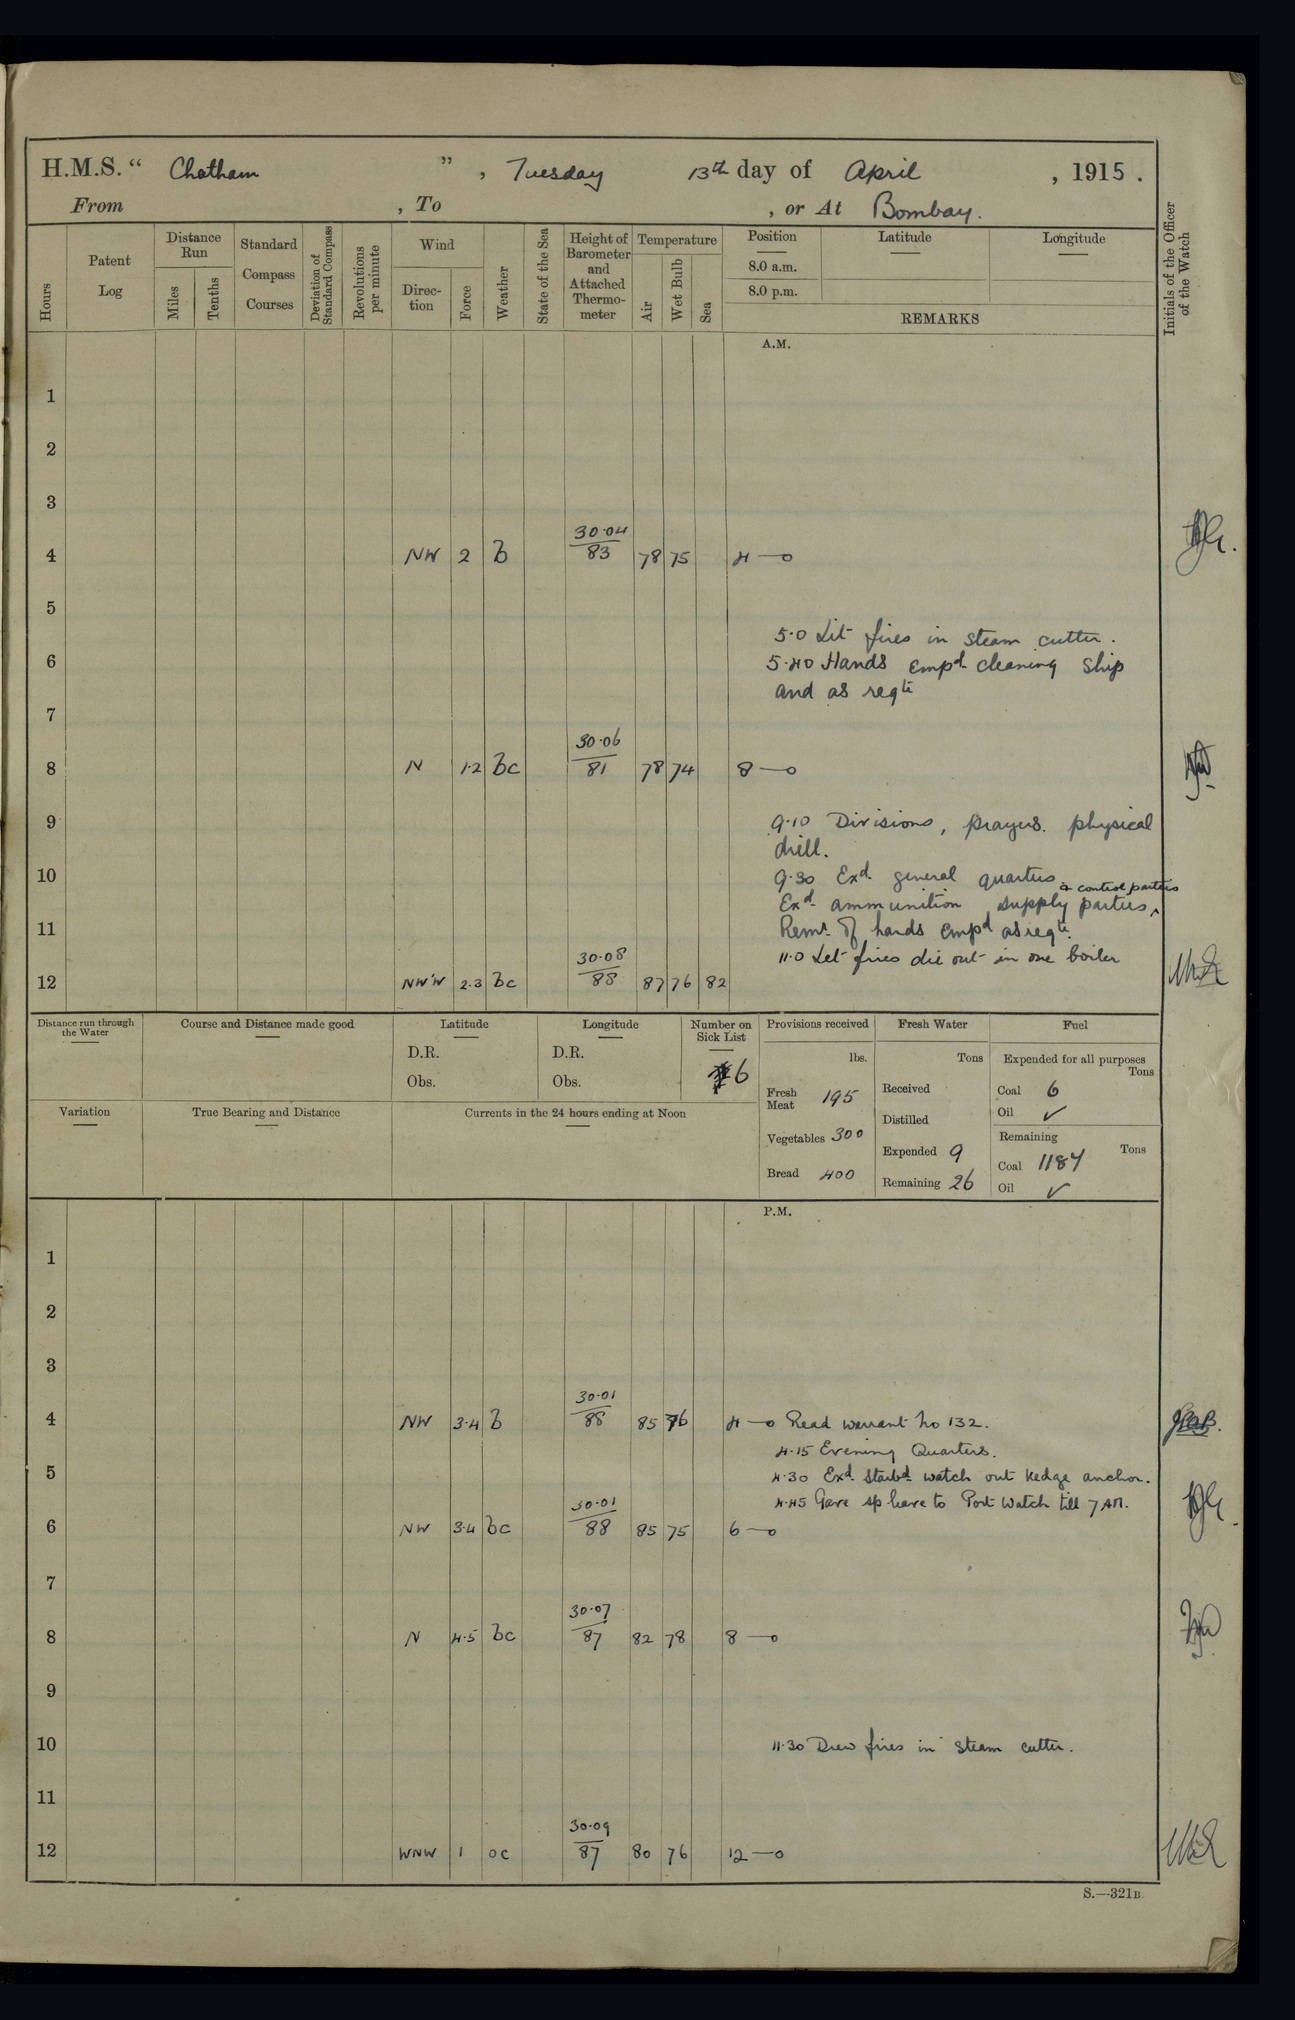 H.M.S. “ Chatham ” , Tuesday 13th day of April , 1915 .
From , To , or At Bombay.
Hours
Patent Log
Distance Run
Miles
Tenths
Standard Compass Courses
Deviation of Standard Compass
Revolutions per minute
Wind
Direction
Force
Weather
State of the Sea
Height of Barometer and Attached Thermometer
Temperature
Air
Wet Bulb
Sea
Position
8.0 a.m.
8.0 p.m.
Latitude
Longitude
REMARKS
Initials of the Officer of the Watch
A.M.
1
2
3
30·04
4 NW 2 b 83 78 75 4 —o
5
5·0 Lit fires in steam cutter.
6 5·40 Hands empd cleaning ship
and as reqte
7
30·06
8 N 1·2 bc 81 78 74 8 —o
9 9·10 Divisions, prayers. physical
drill.
10 9·30 Exd general quarters
& control parties
Exd ammunition supply parties ^
11 Remr of hands empd as reqte.
30·08 11·0 Let fires die out in one boiler
12 NW'W 2·3 bc 88 87 76 82
Distance run through the Water
Course and Distance made good
Latitude
D.R.
Obs.
Longitude
D.R.
Obs.
Number on Sick List
6
Provisions received
lbs.
Fresh Meat 195
Vegetables 300
Bread 400
Fresh Water
Tons
Received
Distilled
Expended 9
Remaining 26
Fuel
Expended for all purposes
Tons
Coal 6
Oil ✓
Remaining
Tons
Coal 1187
Oil ✓
Variation
True Bearing and Distance
Currents in the 24 hours ending at Noon
P.M.
1
2
3
30·01
4 NW 3·4 b 88 85 76 4 —o Read warrant No 132.
4·15 Evening Quarters.
5 4·30 Exd Starbd watch out kedge anchor.
30·01 4·45 Gave sp leave to Port Watch till 7 AM.
6 NW 3·4 bc 88 85 75 6 —o
7
30·07
8 N 4·5 bc 87 82 78 8 —o
9
10 11·30 Drew fires in steam cutter.
11
30·09
12 WNW 1 oc 87 80 76 12 —o
S.—321B.